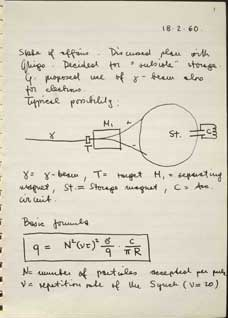 1
18.2.60.
State of affairs. Discussed plan with
Ghigo. Decided for "outside" storage.
G. proposed use of γ-beam also
for electrons.
Typical possibility:
M₁
+
γ
T
-
St.
C
γ = γ-beam, T = target M₁ = separating
magnet, St. = Storage magnet, C = Acc.
circuit.
Basic formula
q = N²(ντ)² σ/q · c/πR
N = number of particles accepted per pulse
ν = repetition rate of the Synch (ν = 20)